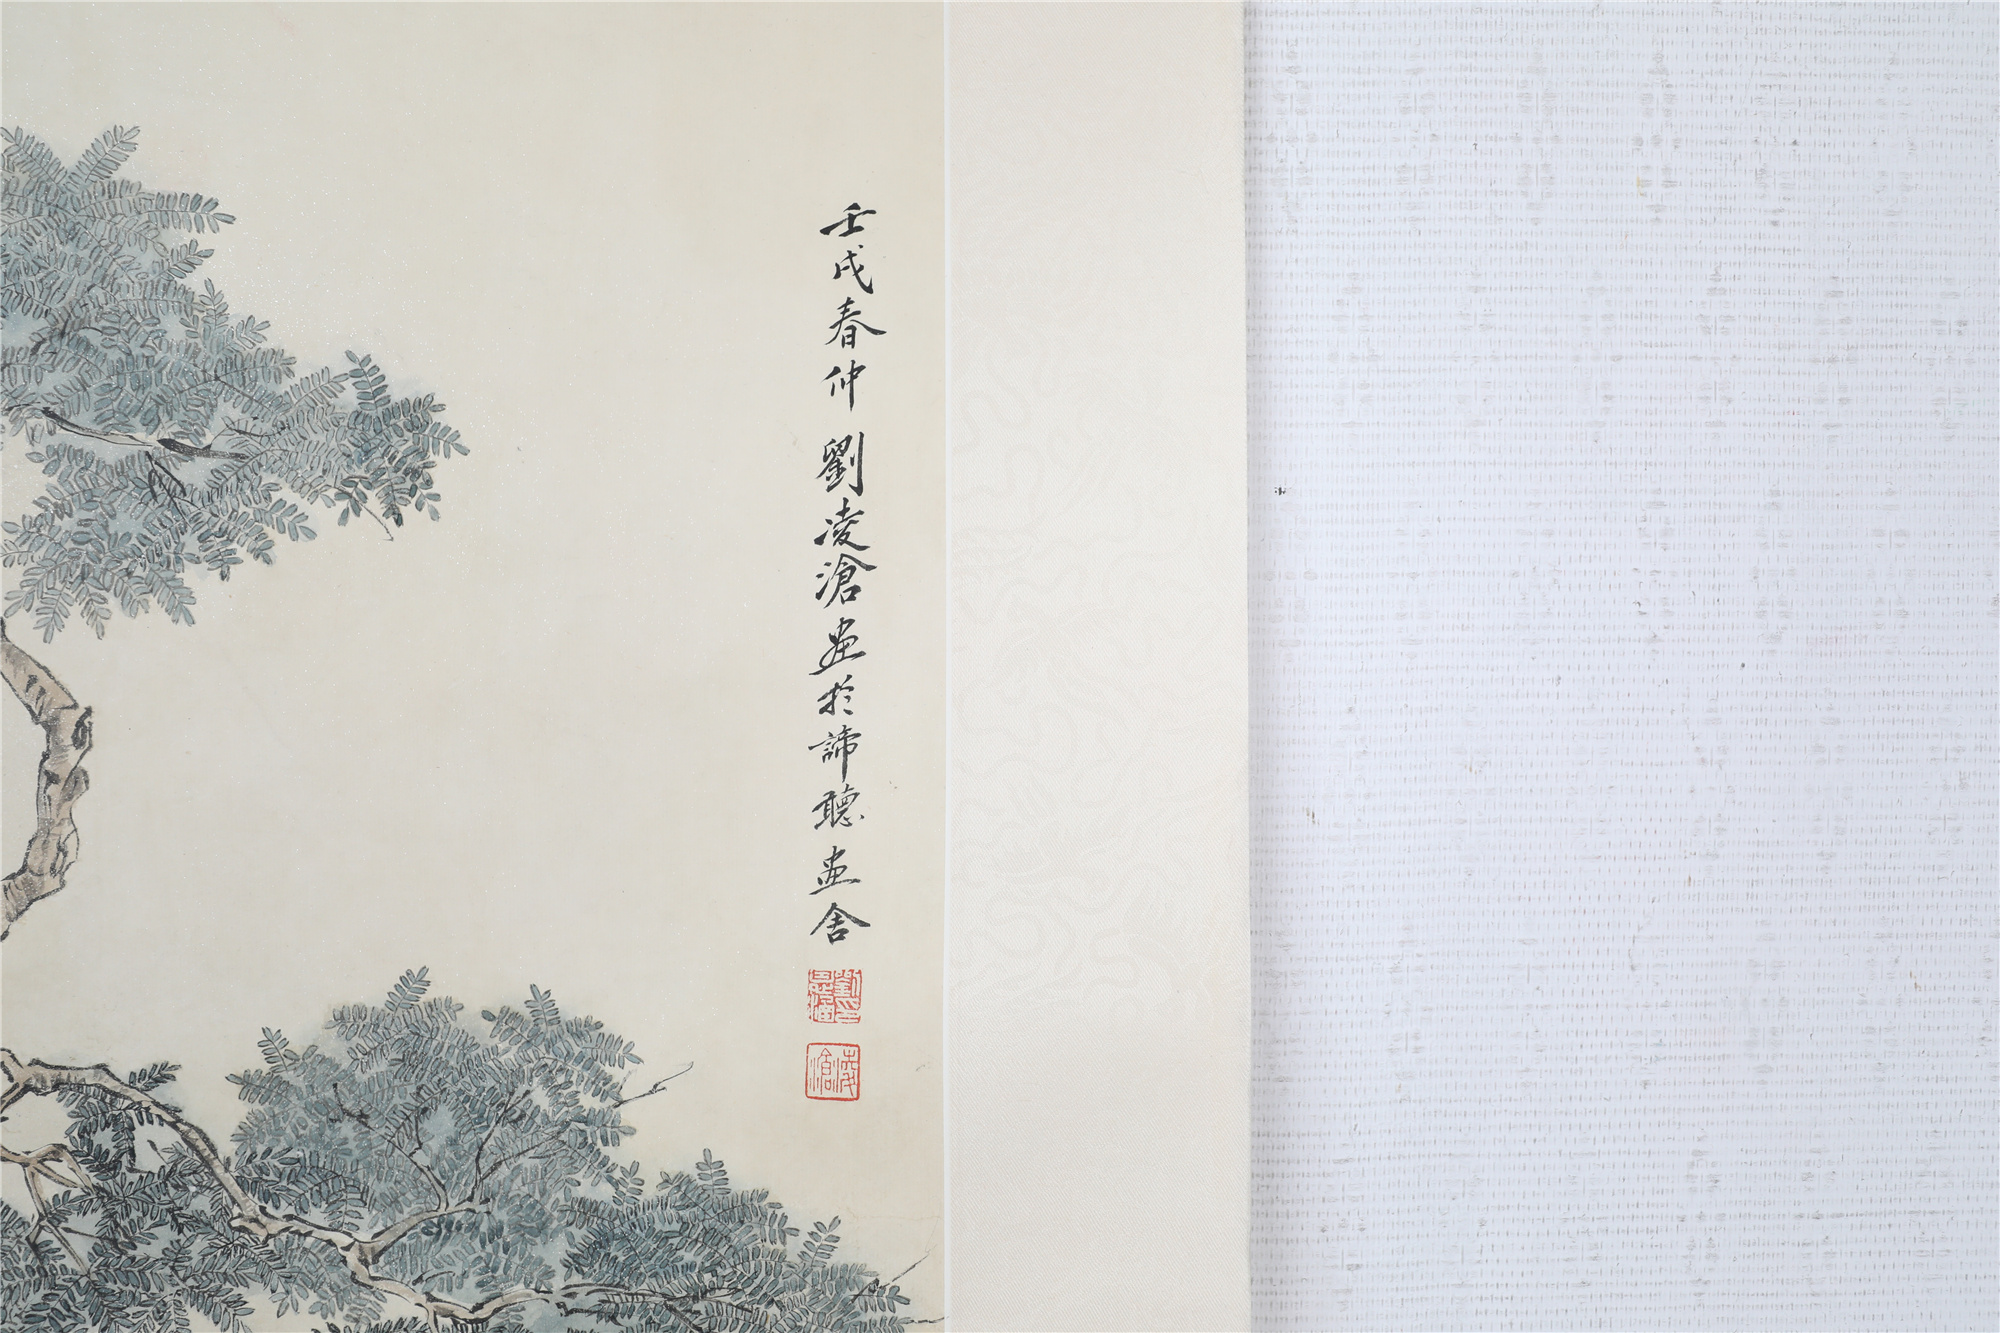 壬戌春仲劉凌滄畫於諦聽畫舍
凌滄